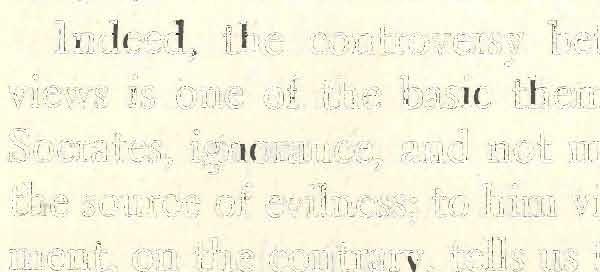 Indeed, the controversy bet
views is one of the basic them
Socrates, ignorance, and not m
the source of evilness; to him vi
ment, on the contrary, tells us i